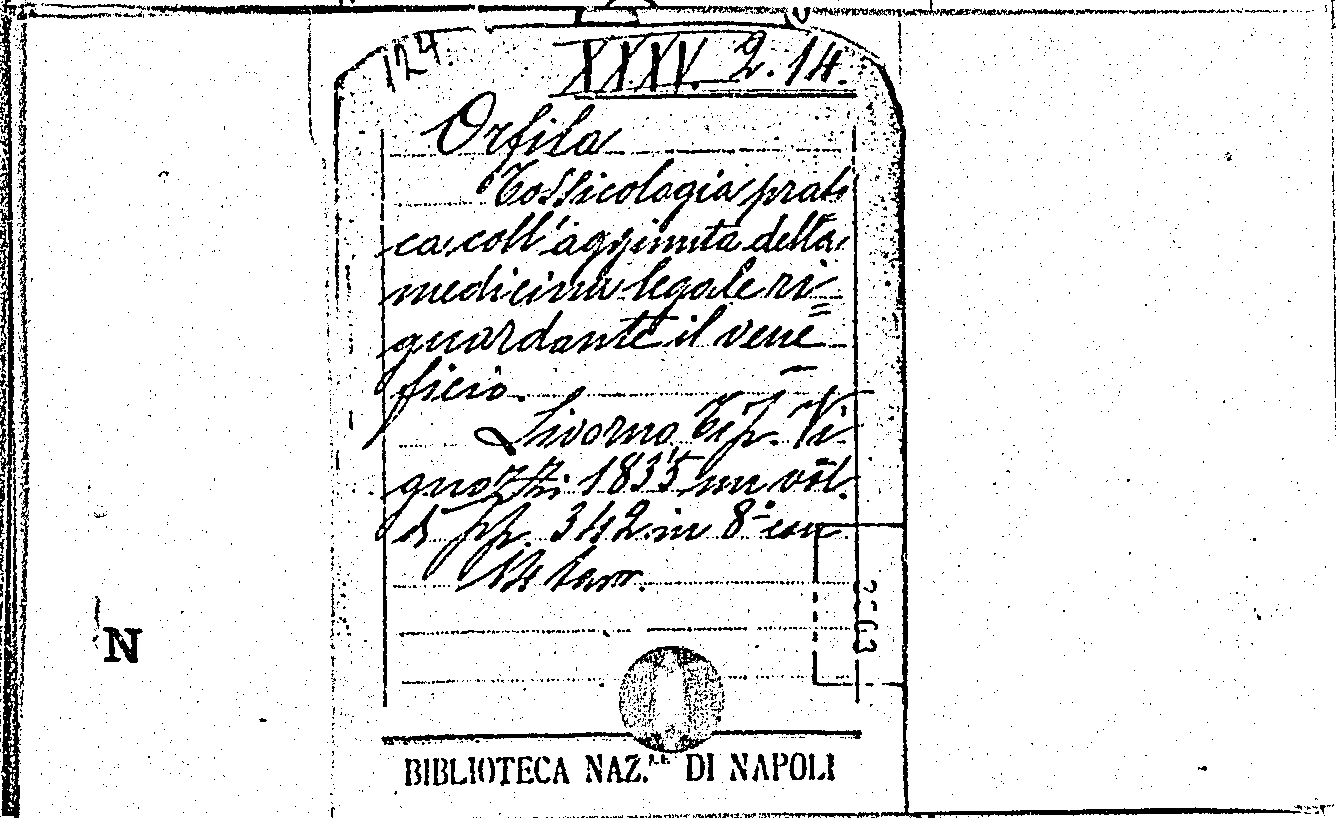 124.
XXXV. 2. 14.
Orfila
Tossicologia prati
ca coll'aggiunta della
medicina legale ri=
guardante il vene
ficio.
Livorno Tip. Vi
gnozzi 1835 un vol.
di pp. 342 in 8° con
tavv.
N
BIBLIOTECA NAZ.LE DI NAPOLI